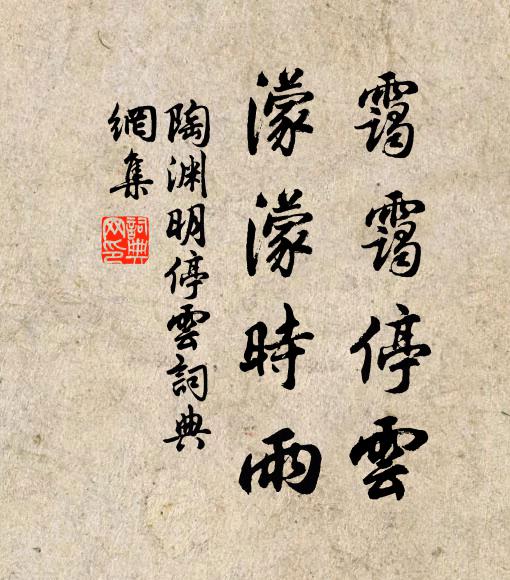 靄靄停雲
濛濛時雨
陶渊明停雲詞典
網集
詞典
网印